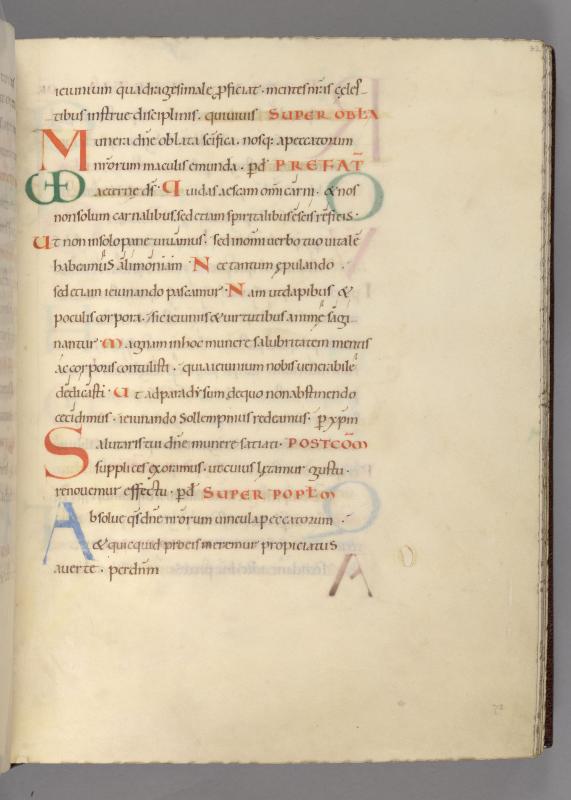 ieiunium quadragesimale ꝓficiat · mentes nr̄as cęles
tibus instrue disciplinis · qui uiuis SUPER OBLA
Munera dn̄e oblata sc̄ifica · nosq: a peccatorum
nr̄orum maculis emunda · p̄d PREFAT̄
VD aeterne ds̄ · Qui das aescam om̄i carni · & nos
non solum carnalibus sed etiam spiritalibus ęscis reficis ·
Ut non in solo pane uiuamus · sed in om̄i uerbo tuo uitalē
habeamus alimoniam · Nec tantum ępulando ·
sed etiam ieiunando pascamur · Nam ut dapibus &
poculis corpora · sic ieiuniis & uirtutibus animę sagi
nantur · Magnam in hoc munere salubritatem mentis
ac corporis contulisti · quia ieiunium nobis uenerabile
dedicasti · Ut ad paradysum de quo non abstinendo
cecidimus · ieiunando sollempnius redeamus · ꝑ xp̄m
Salutaris tui dn̄e munere satiati · POSTCŌM
supplices exoramus · ut cuius lętamur gustu ·
renouemur effectu · p̄d SUPER POPLM
Absolue qs̄ dn̄e nr̄orum uincula peccatorum ·
& quicquid pro eis meremur propiciatus
auerte · per dn̄m
72